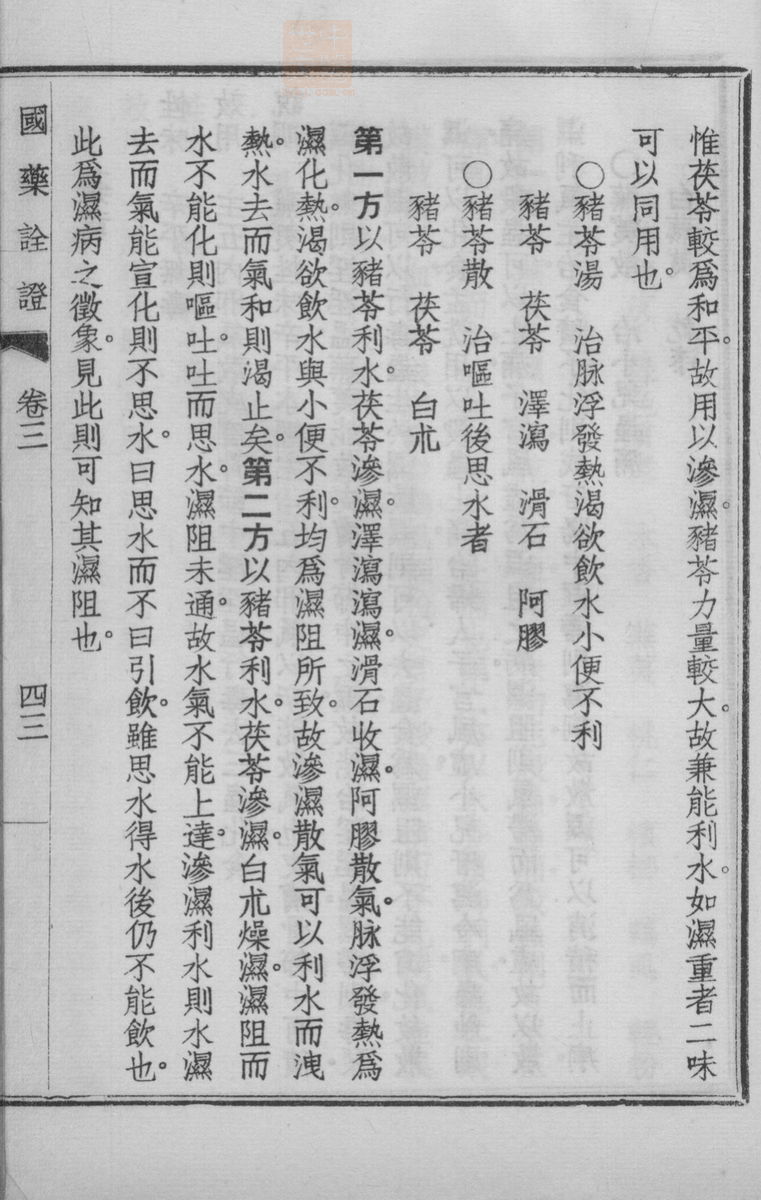 惟茯苓較爲和平。故用以滲濕。豬苓力量較大。故兼能利水。如濕重者二味
可以同用也。
○豬苓湯　治脉浮發熱渴欲飲水小便不利
豬苓　茯苓　澤瀉　滑石　阿膠
○豬苓散　治嘔吐後思水者
豬苓　茯苓　白朮
第一方以豬苓利水。茯苓滲濕。澤瀉瀉濕。滑石收濕。阿膠散氣。脉浮發熱爲
濕化熱。渴欲飲水與小便不利。均爲濕阻所致。故滲濕散氣可以利水而洩
熱。水去而氣和則渴止矣。第二方以豬苓利水。茯苓滲濕。白朮燥濕。濕阻而
水不能化則嘔吐。吐而思水。濕阻未通。故水氣不能上達。滲濕利水則水濕
去而氣能宣化則不思水。曰思水而不曰引飲。雖思水得水後仍不能飲也。
此爲濕病之徵象。見此則可知其濕阻也。
國藥詮證　卷三　四三